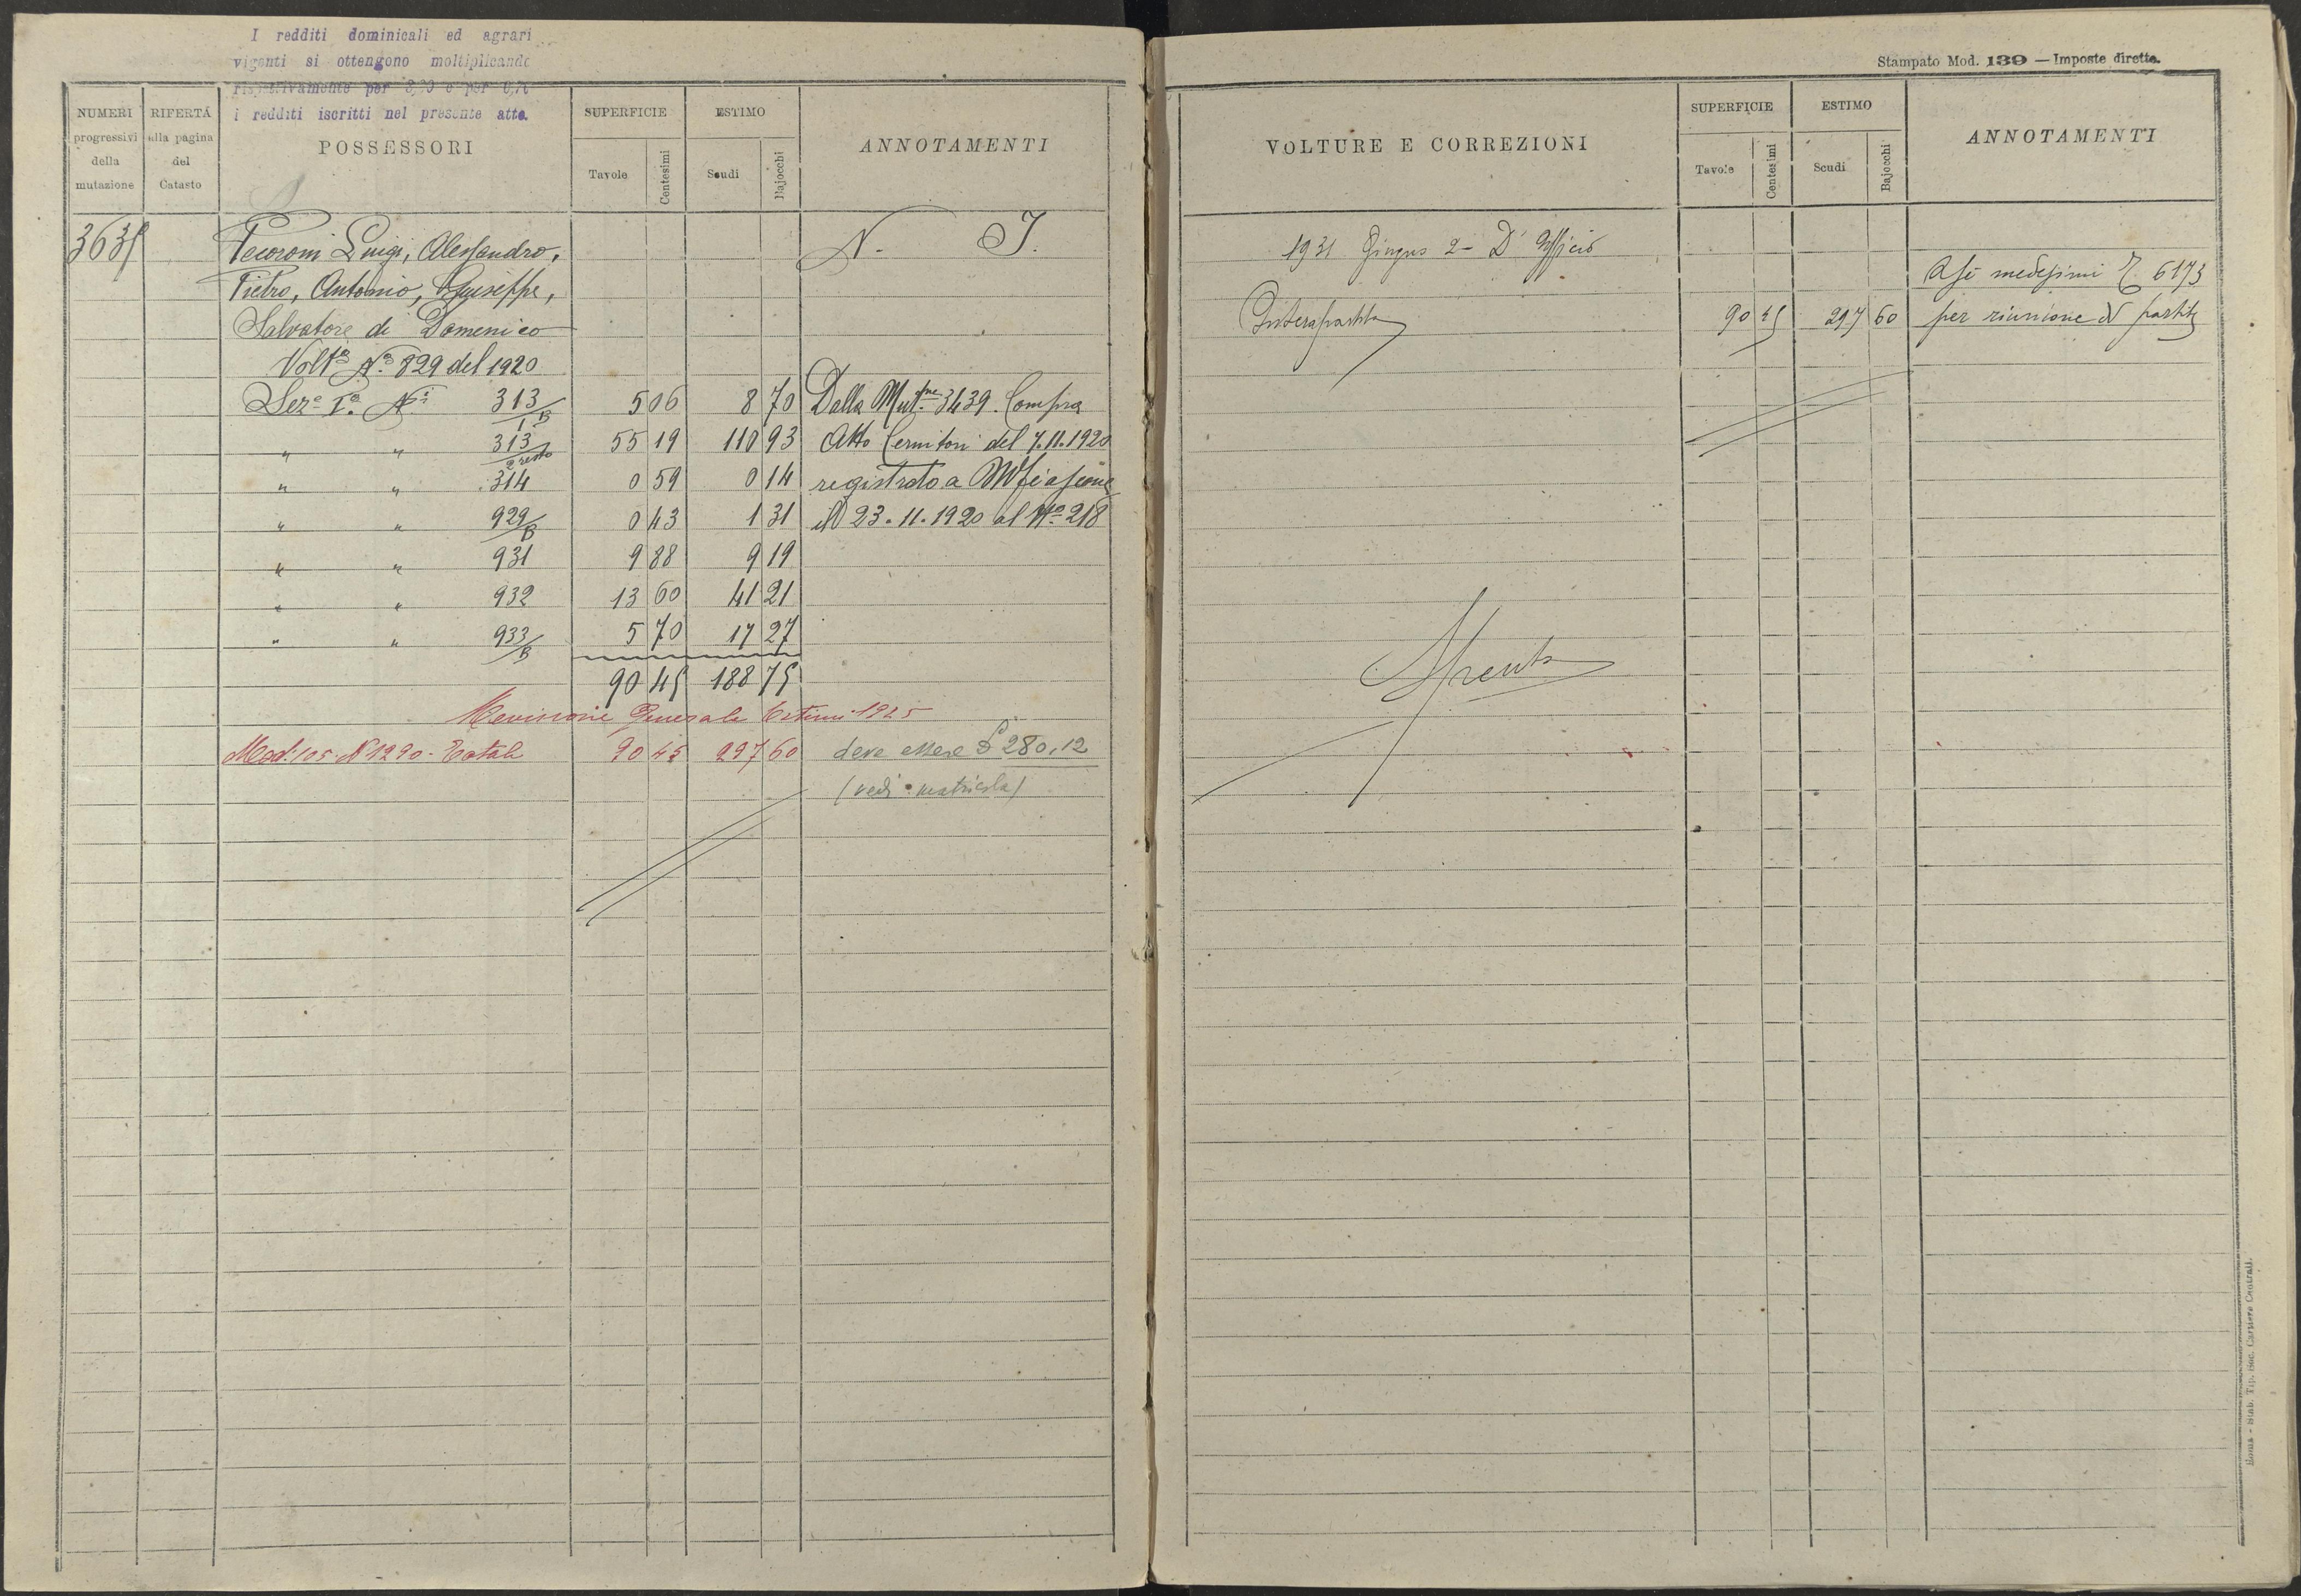 I redditi dominicali ed agrari
vigenti si ottengono moltiplicando
rispettivamente per
i redditi iscritti nel presente atto.
NUMERI
progressivi
della
mutazione
RIFERTÁ
alla pagina
del
Catasto
POSSESSORI
SUPERFICIE
Tavole
Centesimi
ESTIMO
Scudi
Bajocchi
ANNOTAMENTI
3635
Pecoroni Luigi, Alessandro,
N. I.
Pietro, Antonio, Giuseppe,
Salvatore di Domenico
Volta No 829 del 1920
Seze Ia Ni 313/1B 5 06 8 70 Dalla Mutne 3439. Compra
" " 313/2 resto 55 19 110 93 Atto Cernitori del 7.11.1920
" " 314 0 59 0 14 registrato a Mfiascone
" " 929/B 0 43 1 31 il 23.11.1920 al No 218
" " 931 9 88 9 19
" " 932 13 60 41 21
" " 933/B 5 70 17 27
90 45 188 75
Revisione Generale Estimi 1925
Mod. 105 N 1290 - Totale 90 45 297 60 deve essere £ 280,12
(vedi matricola)
Stampato Mod. 139 — Imposte dirette.
VOLTURE E CORREZIONI
SUPERFICIE
Tavole
Centesimi
ESTIMO
Scudi
Bajocchi
ANNOTAMENTI
1931 Giugno 2 - D'Ufficio
A se medesimi 6173
Intera partita 90 45 297 60 per riunione di partite
Spenta
Roma - Stab. Tip. Soc. Cartiere Centrali.